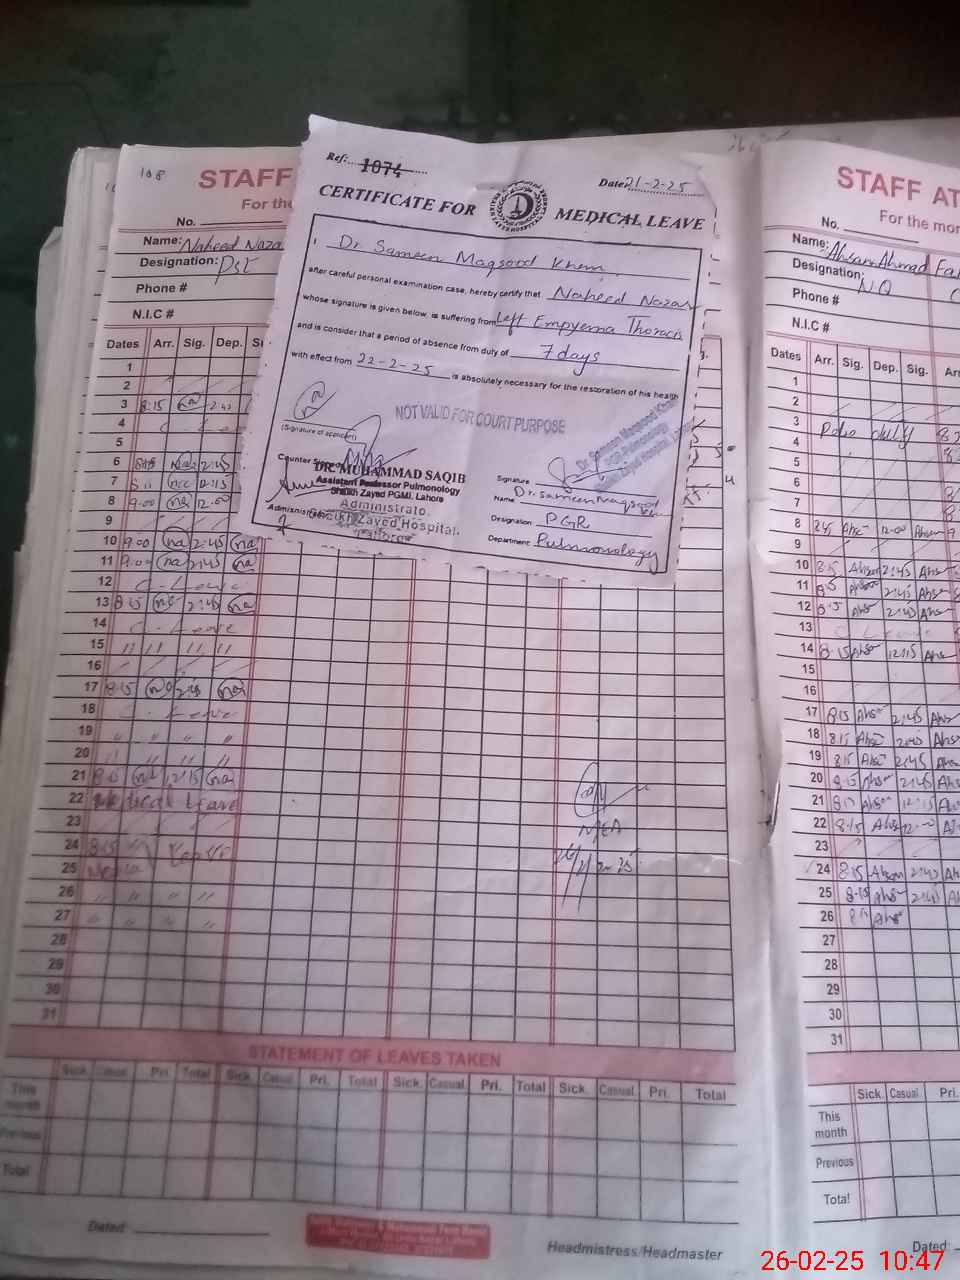 108
STAFF
For the
No.
Name: Naheed Naza
Designation: PST
Phone #
N.I.C #
Dates Arr. Sig. Dep.
Ref: 1074
Date: 21-2-25
CERTIFICATE FOR MEDICAL LEAVE
I Dr Sameen Maqsood Khem
after careful personal examination case, hereby certify that Naheed Nazar
whose signature is given below, is suffering from Left Empyema Thoracis
and is consider that a period of absence from duty of 7 days
with effect from 22-2-25 is absolutely necessary for the restoration of his health
NOT VALID FOR COURT PURPOSE
(Signature of applicant)
DR. MUHAMMAD SAQIB
Assistant Professor Pulmonology
Shaikh Zayed PGMI, Lahore
Administrato.
Sheikh Zayed Hospital,
Lahore
Signature
Name Dr. Sameen Maqsood
Designation PGR
Department Pulmonology
1
2
3 8:15 na 2:45
4
5
6 2:45
7
8 9:00 na 12:00
9
10 9:00 na 2:45 na
11 9:00 na 2:45 na
12 C. Leave
13 8:15 na 2:45 na
14 C. Leave
15 11 11 11 11
16
17 8:15 na na
18 C. Leave
19 " " "
20 " " "
21 8:15 na 12:15 na
22 Medical Leave
23
24 8:15
25 Medical
26 " " " "
27 " " " "
28
29
30
31
STATEMENT OF LEAVES TAKEN
Sick. Casual Pri. Total Sick. Casual Pri. Total Sick. Casual. Pri. Total Sick. Casual. Pri. Total
This month
Previous
Total
Dated:
Headmistress/Headmaster
STAFF AT
For the mon
No.
Name: Ahsan Ahmad
Designation: N.Q
Phone #
N.I.C #
Dates Arr. Sig. Dep. Sig. Arr
1
2
3
4 Polio duty
5
6
7
8 12:00 Ahsan
9
10 8:15 Ahsan 2:45 Ahsa
11 8:15 Ahsan 2:45 Ahsa
12 8:15 Ahsa 2:45 Ahsa
13 C Leave
14 8:15 Ahsa 12:15 Ahsa
15
16
17 8:15 Ahsa 2:45 Ahsa
18 8:15 Ahsa 2:45 Ahsa
19 8:15 Ahsa 2:45 Ahsa
20 8:15 Ahsan 2:45 Ahsa
21 8:15 Ahsan 12:15 Ahsa
22 8:15 Ahsa 12:00 Ahsa
23
24 8:15 Ahsan 2:45 Ah
25 8:15 Ahsa 2:45 Ah
26 Ahsa
27
28
29
30
31
Sick. Casual Pri.
This month
Previous
Total
Dated:
26-02-25 10:47